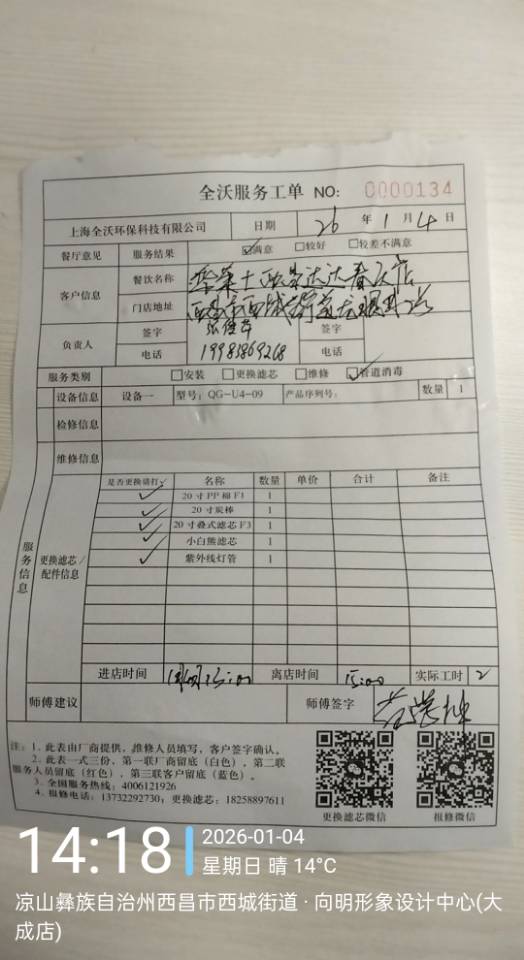 全沃服务工单 NO: 0000134
上海全沃环保科技有限公司 日期 26 年 1 月 4 日
餐厅意见 服务结果 ☑满意 □较好 □较差不满意
客户信息 餐饮名称 华莱士西昌达达春天店
门店地址 西昌市西城
负责人 签字 签字
电话 19983869268 电话
服务类别 □安装 □更换滤芯 □维修 ☑管道消毒
设备信息 设备一 型号: QG-U4-09 产品序列号: 数量 1
检修信息
维修信息
服务信息
更换滤芯/配件信息
是否更换请打√ 名称 数量 单价 合计 备注
✓ 20 寸 PP 棉 F1 1
✓ 20 寸炭棒 1
✓ 20 寸叠式滤芯 F3 1
✓ 小白熊滤芯 1
✓ 紫外线灯管 1
进店时间 13:00 离店时间 15:00 实际工时 2
师傅建议 师傅签字
注: 1. 此表由厂商提供, 维修人员填写, 客户签字确认。
2. 此表一式三份, 第一联厂商留底 (白色), 第二联
服务人员留底 (红色), 第三联客户留底 (蓝色)。
3. 全国服务热线: 4006121926
4. 报修电话: 13732292730; 更换滤芯: 18258897611
更换滤芯微信 报修微信
14:18 2026-01-04
星期日 晴 14°C
凉山彝族自治州西昌市西城街道 · 向明形象设计中心(大
成店)